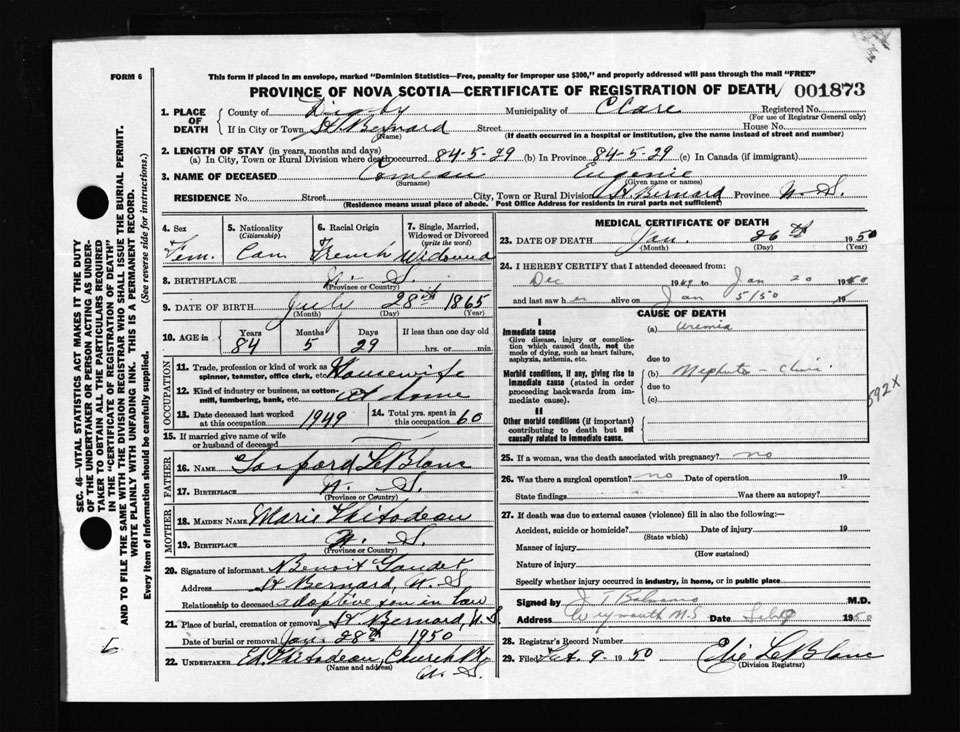 FORM 6
This form if placed in an envelope, marked "Dominion Statistics—Free, penalty for improper use $300," and properly addressed will pass through the mail "FREE"
PROVINCE OF NOVA SCOTIA—CERTIFICATE OF REGISTRATION OF DEATH 001873
1. PLACE OF DEATH County of Digby Municipality of Clare Registered No.
(For use of Registrar General only)
If in City or Town St Bernard Street House No.
(Name) (If death occurred in a hospital or institution, give the name instead of street and number)
2. LENGTH OF STAY (in years, months and days)
(a) In City, Town or Rural Division where death occurred 84-5-29 (b) In Province 84-5-29 (c) In Canada (if immigrant)
3. NAME OF DECEASED Comeau Eugenie
(Surname) (Given name or names)
RESIDENCE No. Street City, Town or Rural Division St. Bernard Province N.S.
(Residence means usual place of abode. Post Office Address for residents in rural parts not sufficient)
4. Sex 5. Nationality 6. Racial Origin 7. Single, Married, Widowed or Divorced
(Citizenship) (write the word)
Fem. Can French Widowed
8. BIRTHPLACE N. S.
(Province or Country)
9. DATE OF BIRTH July 28th 1865
(Month) (Day) (Year)
10. AGE in Years Months Days If less than one day old
84 5 29 hrs. or min.
OCCUPATION
11. Trade, profession or kind of work as spinner, teamster, office clerk, etc. Housewife
12. Kind of industry or business, as cotton-mill, lumbering, bank, etc. At home
13. Date deceased last worked at this occupation 1949 14. Total yrs. spent in this occupation 60
15. If married give name of wife or husband of deceased
FATHER
16. NAME LeBlanc
17. BIRTHPLACE N. S.
(Province or Country)
MOTHER
18. MAIDEN NAME Marie Thibodeau
19. BIRTHPLACE N. S.
(Province or Country)
20. Signature of informant Benoit Gaudet
Address St Bernard, N. S
Relationship to deceased adoptive son in law
21. Place of burial, cremation or removal St Bernard, N. S.
Date of burial or removal Jan. 28th 1950
22. UNDERTAKER Ed. Thibodeau, Church Pt,
(Name and address) N. S.
MEDICAL CERTIFICATE OF DEATH
23. DATE OF DEATH Jan. 26th 1950
(Month) (Day) (Year)
24. I HEREBY CERTIFY that I attended deceased from:
Dec 1949 to Jan 20 1950
and last saw her alive on Jan 5/50 19
CAUSE OF DEATH
I
Immediate cause (a) uremia
Give disease, injury or complication which caused death, not the mode of dying, such as heart failure, asphyxia, asthenia, etc.
due to
Morbid conditions, if any, giving rise to immediate cause (stated in order proceeding backwards from immediate). (b)
due to
(c)
592x
II
Other morbid conditions (if important) contributing to death but not causally related to immediate cause.
25. If a woman, was the death associated with pregnancy? no
26. Was there a surgical operation? no Date of operation 19
State findings Was there an autopsy?
27. If death was due to external causes (violence) fill in also the following:—
Accident, suicide or homicide? Date of injury 19
(State which)
Manner of injury
(How sustained)
Nature of injury
Specify whether injury occurred in industry, in home, or in public place
Signed by M.D.
Address Weymouth N.S Date 1950
28. Registrar's Record Number
29. Filed Feb. 9. 1950 Elie LeBlanc
(Division Registrar)
SEC. 46—VITAL STATISTICS ACT MAKES IT THE DUTY
OF THE UNDERTAKER OR PERSON ACTING AS UNDERTAKER
TO OBTAIN ALL THE PARTICULARS REQUIRED
IN THE "CERTIFICATE OF REGISTRATION OF DEATH"
AND TO FILE THE SAME WITH THE DIVISION REGISTRAR WHO SHALL ISSUE THE BURIAL PERMIT.
WRITE PLAINLY WITH UNFADING INK. THIS IS A PERMANENT RECORD.
Every item of information should be carefully supplied. (See reverse side for instructions.)